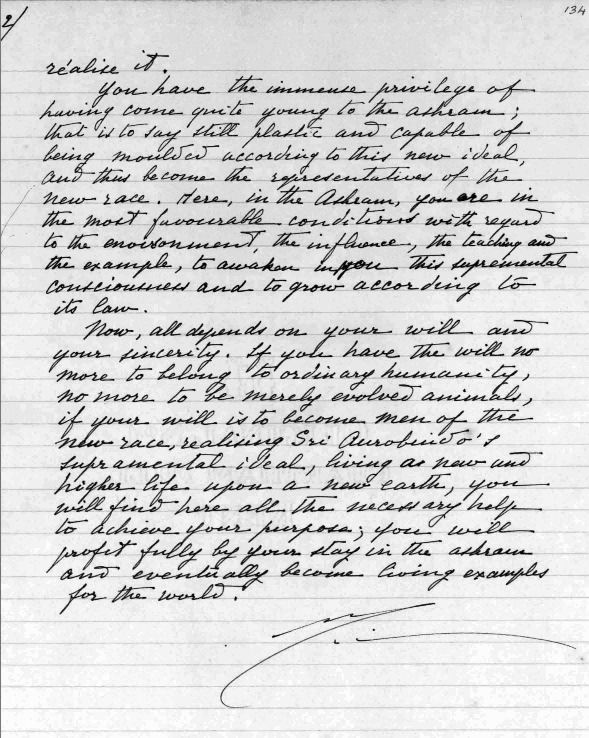 2/
134
réalise it.
You have the immense privilege of
having come quite young to the ashram;
that is to say still plastic and capable of
being moulded according to this new ideal,
and thus become the representatives of the
new race. Here, in the Ashram, you are in
the most favourable conditions with regard
to the environment, the influence, the teaching and
the example, to awaken in you this supremental
consciousness and to grow according to
its law.
Now, all depends on your will and
your sincerity. If you have the will no
more to belong to ordinary humanity,
no more to be merely evolved animals,
if your will is to become men of the
new race, realising Sri Aurobindo's
supramental ideal, living a new and
higher life upon a new earth, you
will find here all the necessary help
to achieve your purpose; you will
profit fully by your stay in the ashram
and eventually become living examples
for the world.